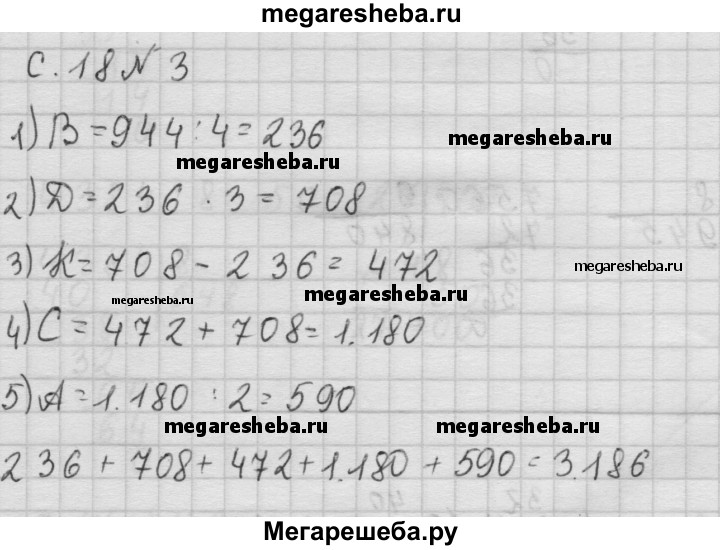 megaresheba.ru
с. 18 № 3
1) В = 944 : 4 = 236
megaresheba.ru
megaresheba.ru
2) Д = 236 · 3 = 708
3) К = 708 - 236 = 472
megaresheba.ru
megaresheba.ru
megaresheba.ru
4) С = 472 + 708 = 1.180
5) А = 1.180 : 2 = 590
megaresheba.ru
megaresheba.ru
236 + 708 + 472 + 1.180 + 590 = 3.186
Мегарешеба.ру